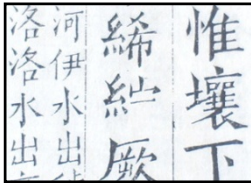 惟壤下
絺紵厥
河伊水出
洛洛水出